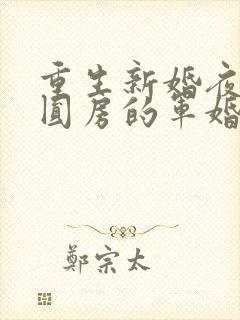 重生新婚夜
圆房的军婚
鄭宗太